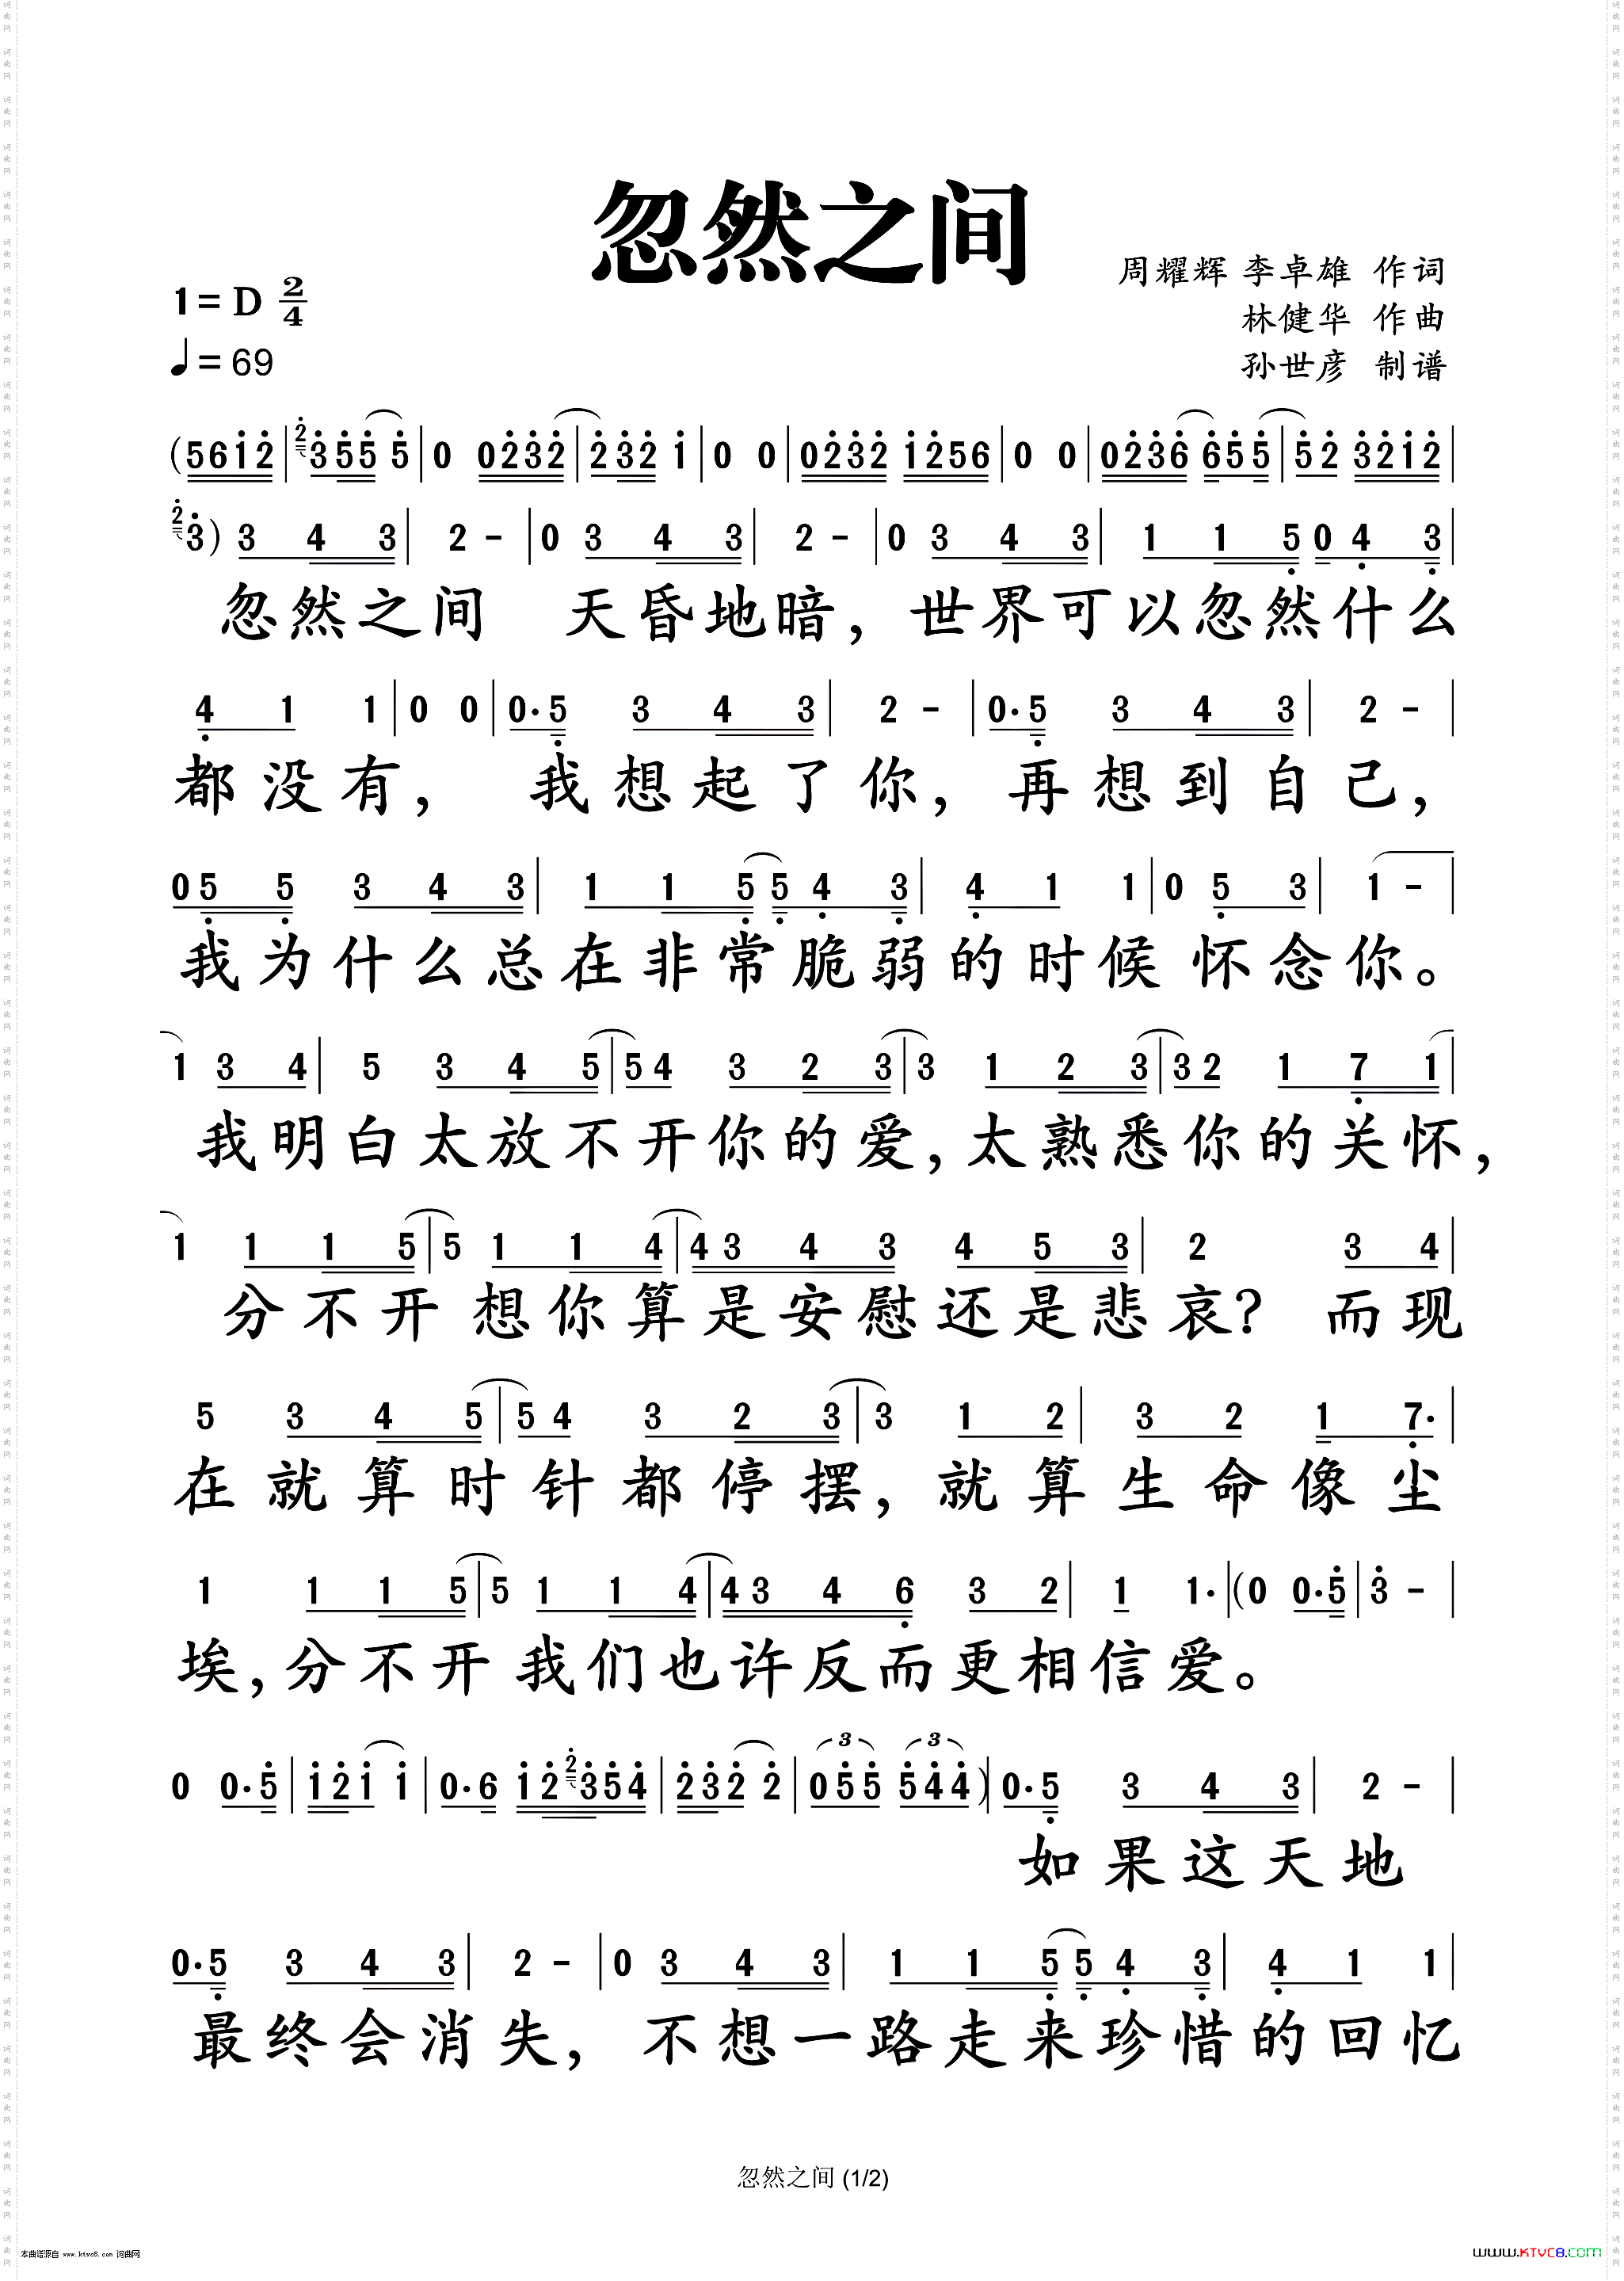 忽然之间
周耀辉 李卓雄 作词
1= D 2/4
林健华 作曲
♩= 69
孙世彦 制谱
(5612|2355 5|0 0232|232 1|0 0|0232 1256|0 0|0236 655|52 3212|
23) 3 4 3|2 -|0 3 4 3|2 -|0 3 4 3|1 1 5 0 4 3|
忽然之间 天昏地暗，世界可以忽然什么
4 1 1|0 0|0·5 3 4 3|2 -|0·5 3 4 3|2 -|
都没有， 我想起了你，再想到自己，
0 5 5 3 4 3|1 1 5 5 4 3|4 1 1|0 5 3|1 -|
我为什么总在非常脆弱的时候 怀念你。
1 3 4|5 3 4 5|5 4 3 2 3|3 1 2 3|3 2 1 7 1|
我明白太放不开你的爱，太熟悉你的关怀，
1 1 1 5|5 1 1 4|4 3 4 3 4 5 3|2 3 4|
分不开 想你算是安慰还是悲哀？ 而现
5 3 4 5|5 4 3 2 3|3 1 2|3 2 1 7·|
在就算时针都停摆，就算生命像尘
1 1 1 5|5 1 1 4|4 3 4 6 3 2|1 1·|(0 0·5|3 -|
埃，分不开 我们也许反而更相信爱。
0 0·5|121 1|0·6 122354|232 2|3 055 3 544)|0·5 3 4 3|2 -|
如果这天地
0·5 3 4 3|2 -|0 3 4 3|1 1 5 5 4 3|4 1 1|
最终会消失，不想一路走来珍惜的回忆
忽然之间 (1/2)
本曲谱源自 www.ktvc8.com 词曲网
www.KTVC8.com